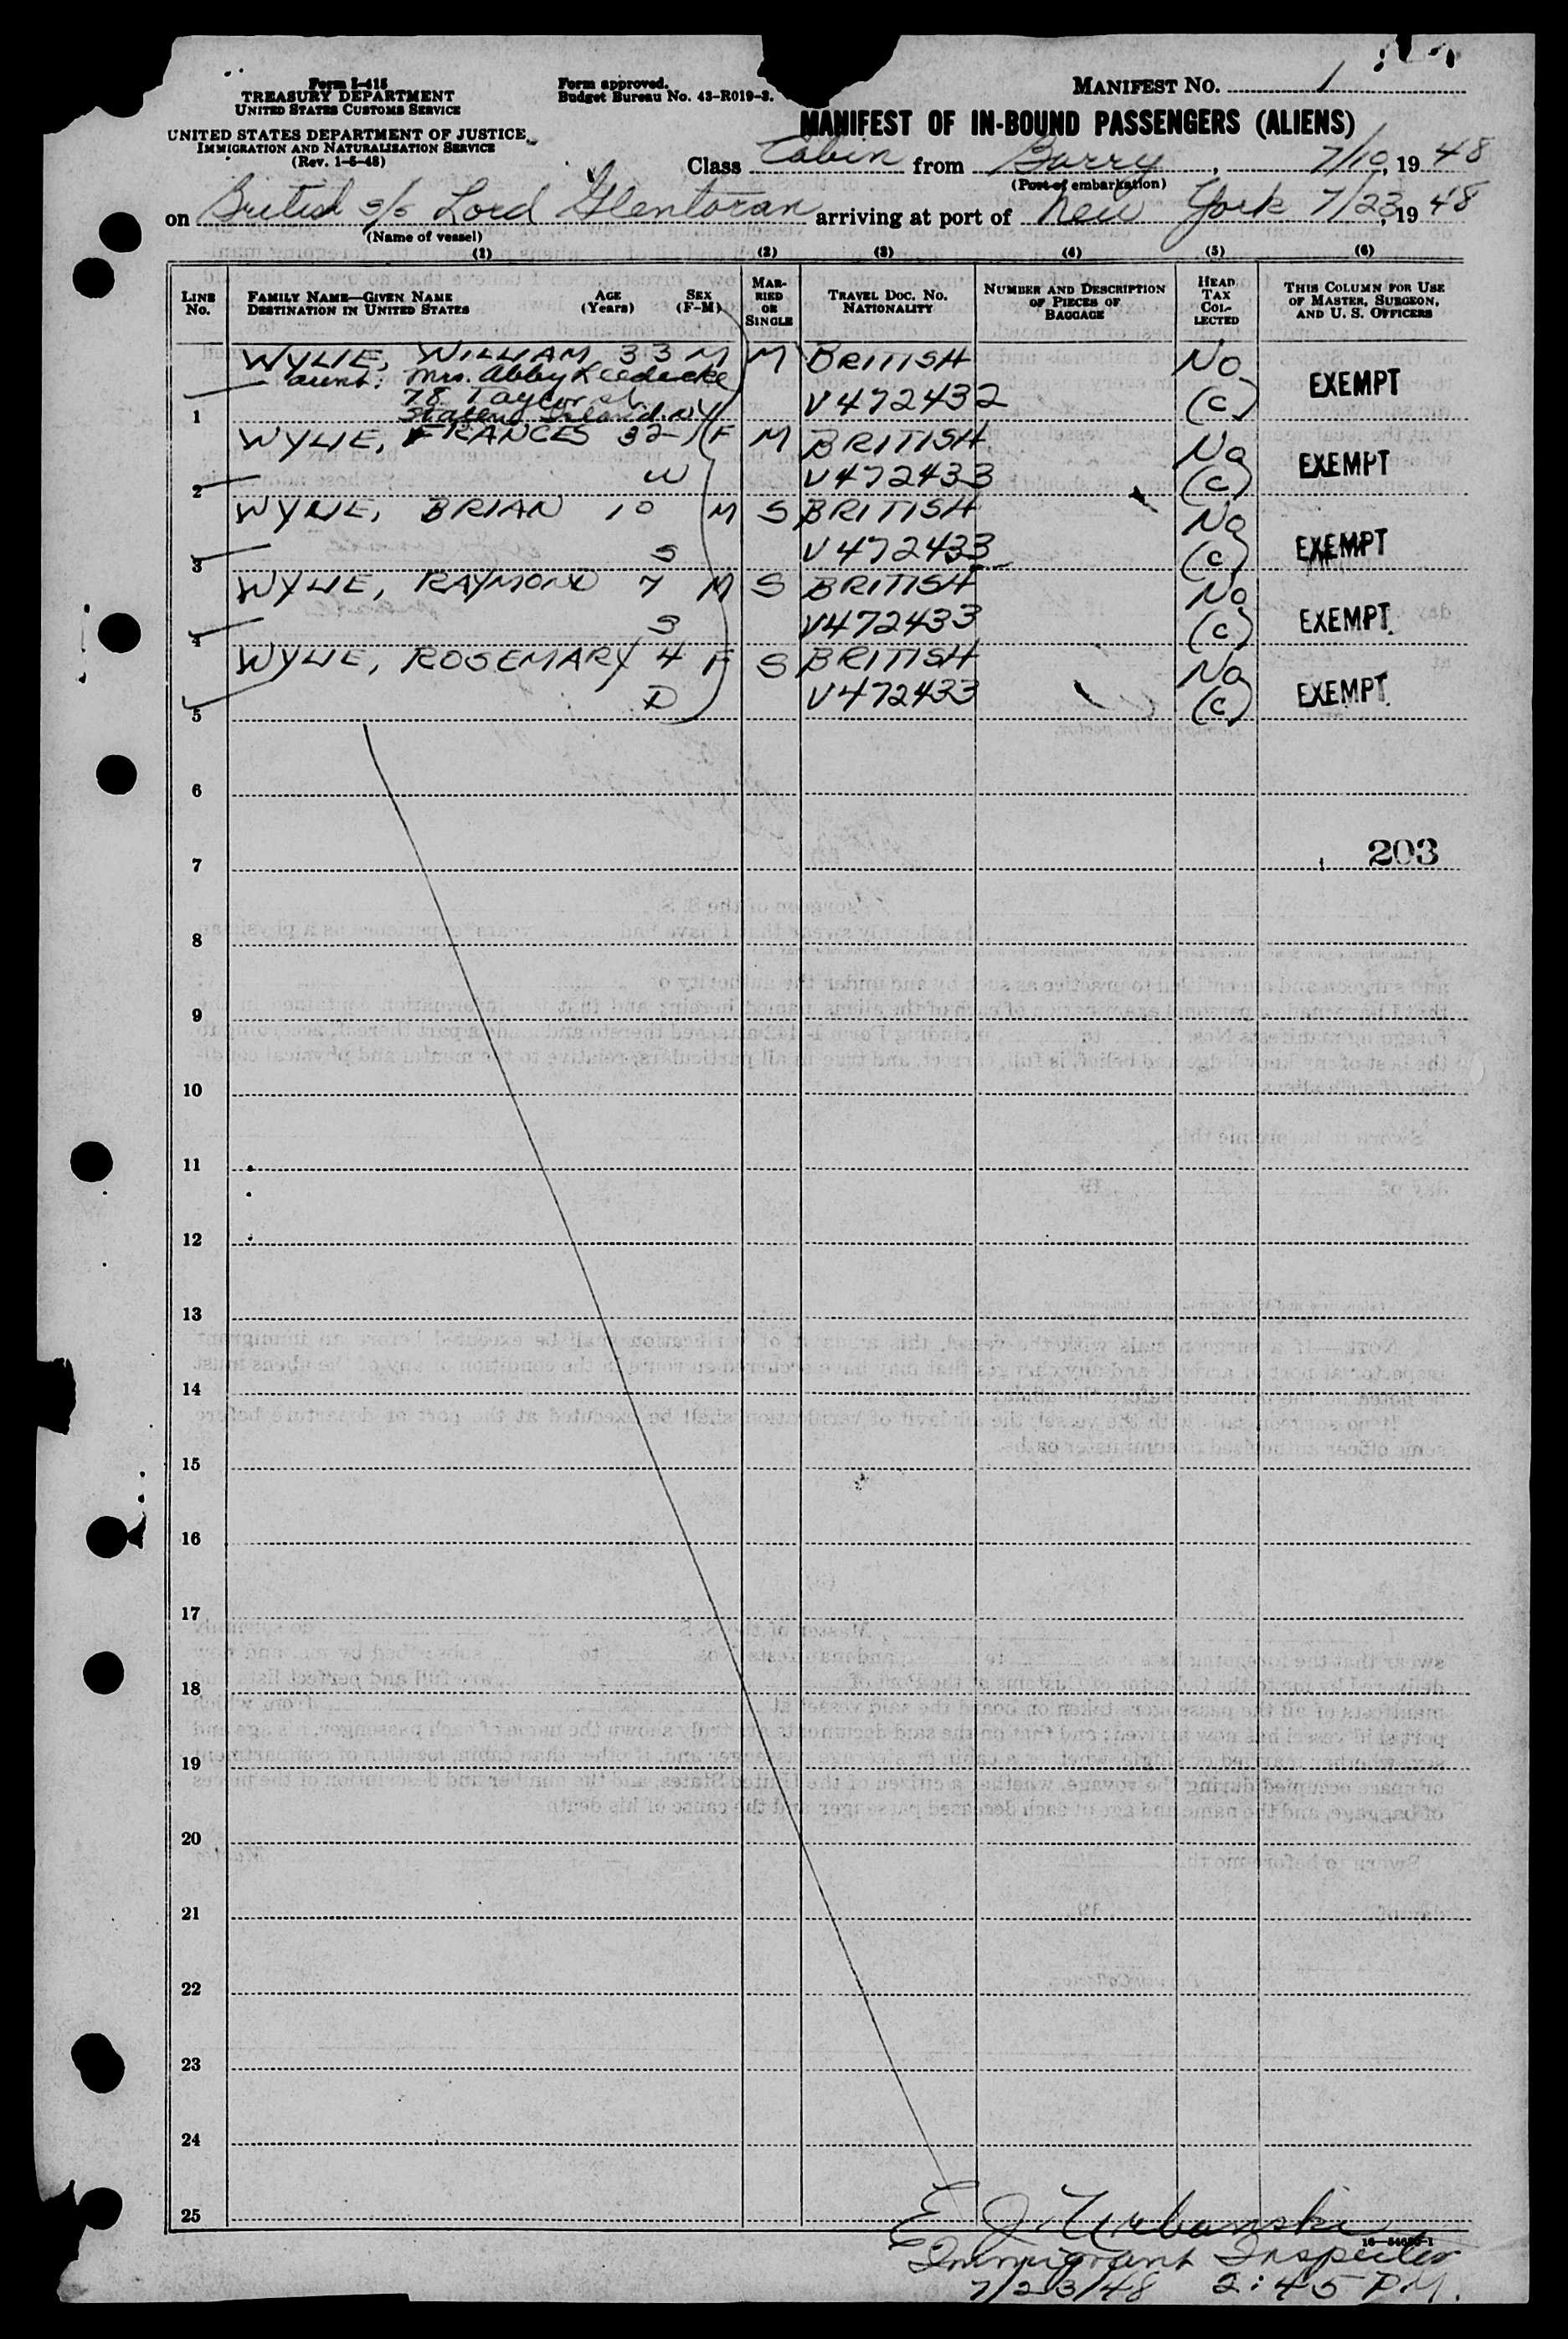 Form I-415
TREASURY DEPARTMENT
UNITED STATES CUSTOMS SERVICE
UNITED STATES DEPARTMENT OF JUSTICE
IMMIGRATION AND NATURALIZATION SERVICE
(Rev. 1-5-48)
Form approved.
Budget Bureau No. 43-R019-3.
MANIFEST NO. 1
MANIFEST OF IN-BOUND PASSENGERS (ALIENS)
Class Cabin from Barry, 7/10, 19 48
(Port of embarkation)
on British s/s Lord Glentoran arriving at port of New York 7/23, 19 48
(Name of vessel)
(1) (2) (3) (4) (5) (6)
LINE No. FAMILY NAME—GIVEN NAME DESTINATION IN UNITED STATES AGE (Years) SEX (F-M) MARRIED OR SINGLE TRAVEL DOC. NO. NATIONALITY NUMBER AND DESCRIPTION OF PIECES OF BAGGAGE HEAD TAX COLLECTED THIS COLUMN FOR USE OF MASTER, SURGEON, AND U. S. OFFICERS
WYLIE, WILLIAM 33 M M BRITISH No
aunt: Mrs. Abby EXEMPT
78 Taylor St. V472432 (C)
1 Staten Island. NY
WYLIE, FRANCES 32 F M BRITISH No
2 W V472433 (C) EXEMPT
WYLIE, BRIAN 10 M S BRITISH No
3 S V472433 (C) EXEMPT
WYLIE, RAYMOND 7 M S BRITISH No
4 S V472433 (C) EXEMPT
WYLIE, ROSEMARY 4 F S BRITISH No
5 D V472433 (C) EXEMPT
6
7 203
8
9
10
11
12
13
14
15
16
17
18
19
20
21
22
23
24
25
E J Urbanski
16-54626-1
Immigrant Inspector
7/23/48 2:45 PM.